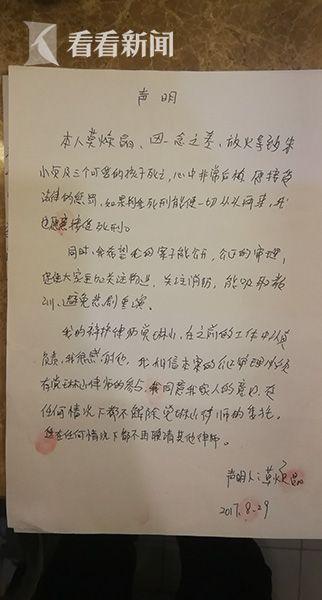 看看新闻
声明
本人莫焕晶、因一念之差、放火导致朱
小贞及三个可爱的孩子死亡,心中非常后悔 愿接受
法律的惩罚、如果判处死刑能使一切从头再来,我
也愿意接受死刑。
同时,我希望我的案子能公开,公正的审理,
促使大家更加关注物业,关注消防,能吸取教
训、避免悲剧重演。
我的辩护律师党琳山,在之前的工作中认真
负责,我很感谢他,我相信未来的公正审理必须
有党琳山律师的参与,我同意我家人的意见,在
任何情况下都不解除党琳山律师的委托。
在任何情况下都不再聘请其他律师。
声明人:莫焕晶
2017.8.29